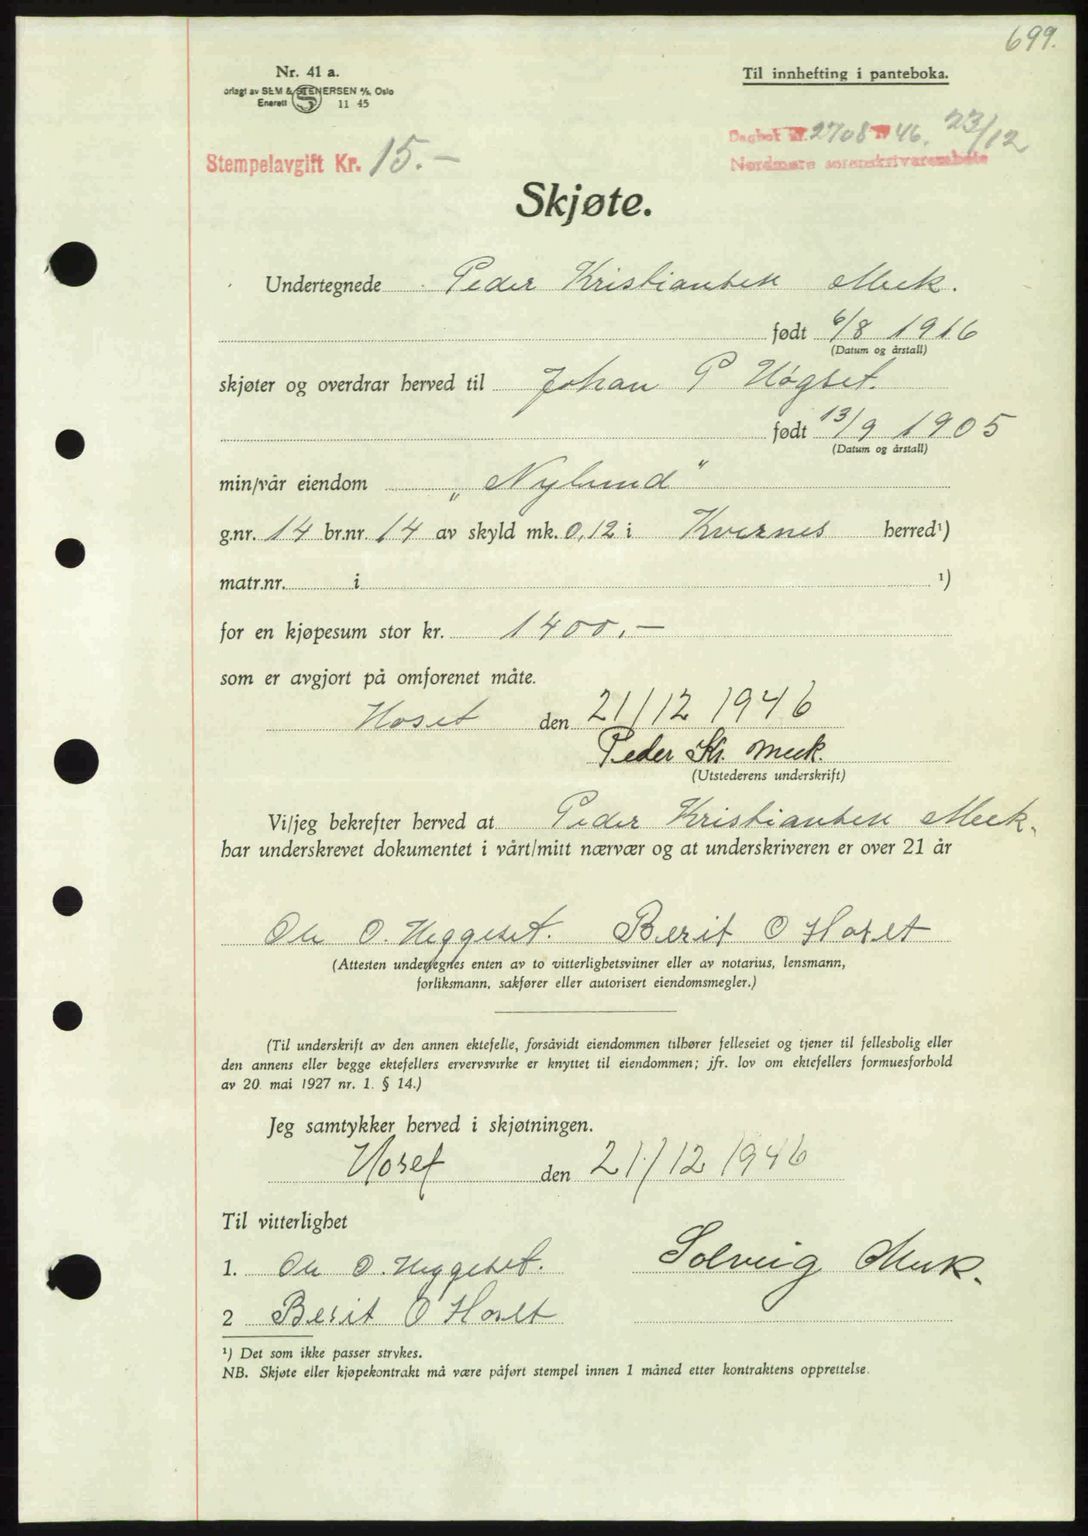 699.
Nr. 41 a.
Til innhefting i panteboka.
orlagt av SEM & STENERSEN A/S, Oslo
Enerett S 11 45
Dagbok nr. 2708 19 46. 23/12
Stempelavgift Kr. 15.-
Nordmøre sorenskriverembete
Skjøte.
Undertegnede Peder Kristiansen Meek.
født 6/8 1916
(Datum og årstall)
skjøter og overdrar herved til Johan P Høgset.
født 13/9 1905
(Datum og årstall)
min/vår eiendom „Nylund"
g.nr. 14 br.nr. 14 av skyld mk. 0,12 i Kvernes herred¹)
matr.nr. i ¹)
for en kjøpesum stor kr. 1400,-
som er avgjort på omforenet måte.
Hoset den 21/12 1946
Peder Kr. Meek.
(Utstederens underskrift)
Vi/jeg bekrefter herved at Peder Kristiansen Meek.
har underskrevet dokumentet i vårt/mitt nærvær og at underskriveren er over 21 år
Ole O. Heggeset. Berit O Hoset
(Attesten undertegnes enten av to vitterlighetsvitner eller av notarius, lensmann,
forliksmann, sakfører eller autorisert eiendomsmegler.)
(Til underskrift av den annen ektefelle, forsåvidt eiendommen tilhører felleseiet og tjener til fellesbolig eller
den annens eller begge ektefellers ervervsvirke er knyttet til eiendommen; jfr. lov om ektefellers formuesforhold
av 20. mai 1927 nr. 1. § 14.)
Jeg samtykker herved i skjøtningen.
Hoset den 21/12 1946
Til vitterlighet
1. Ole O. Heggeset. Solveig Meek.
2 Berit O Hoset
¹) Det som ikke passer strykes.
NB. Skjøte eller kjøpekontrakt må være påført stempel innen 1 måned etter kontraktens opprettelse.